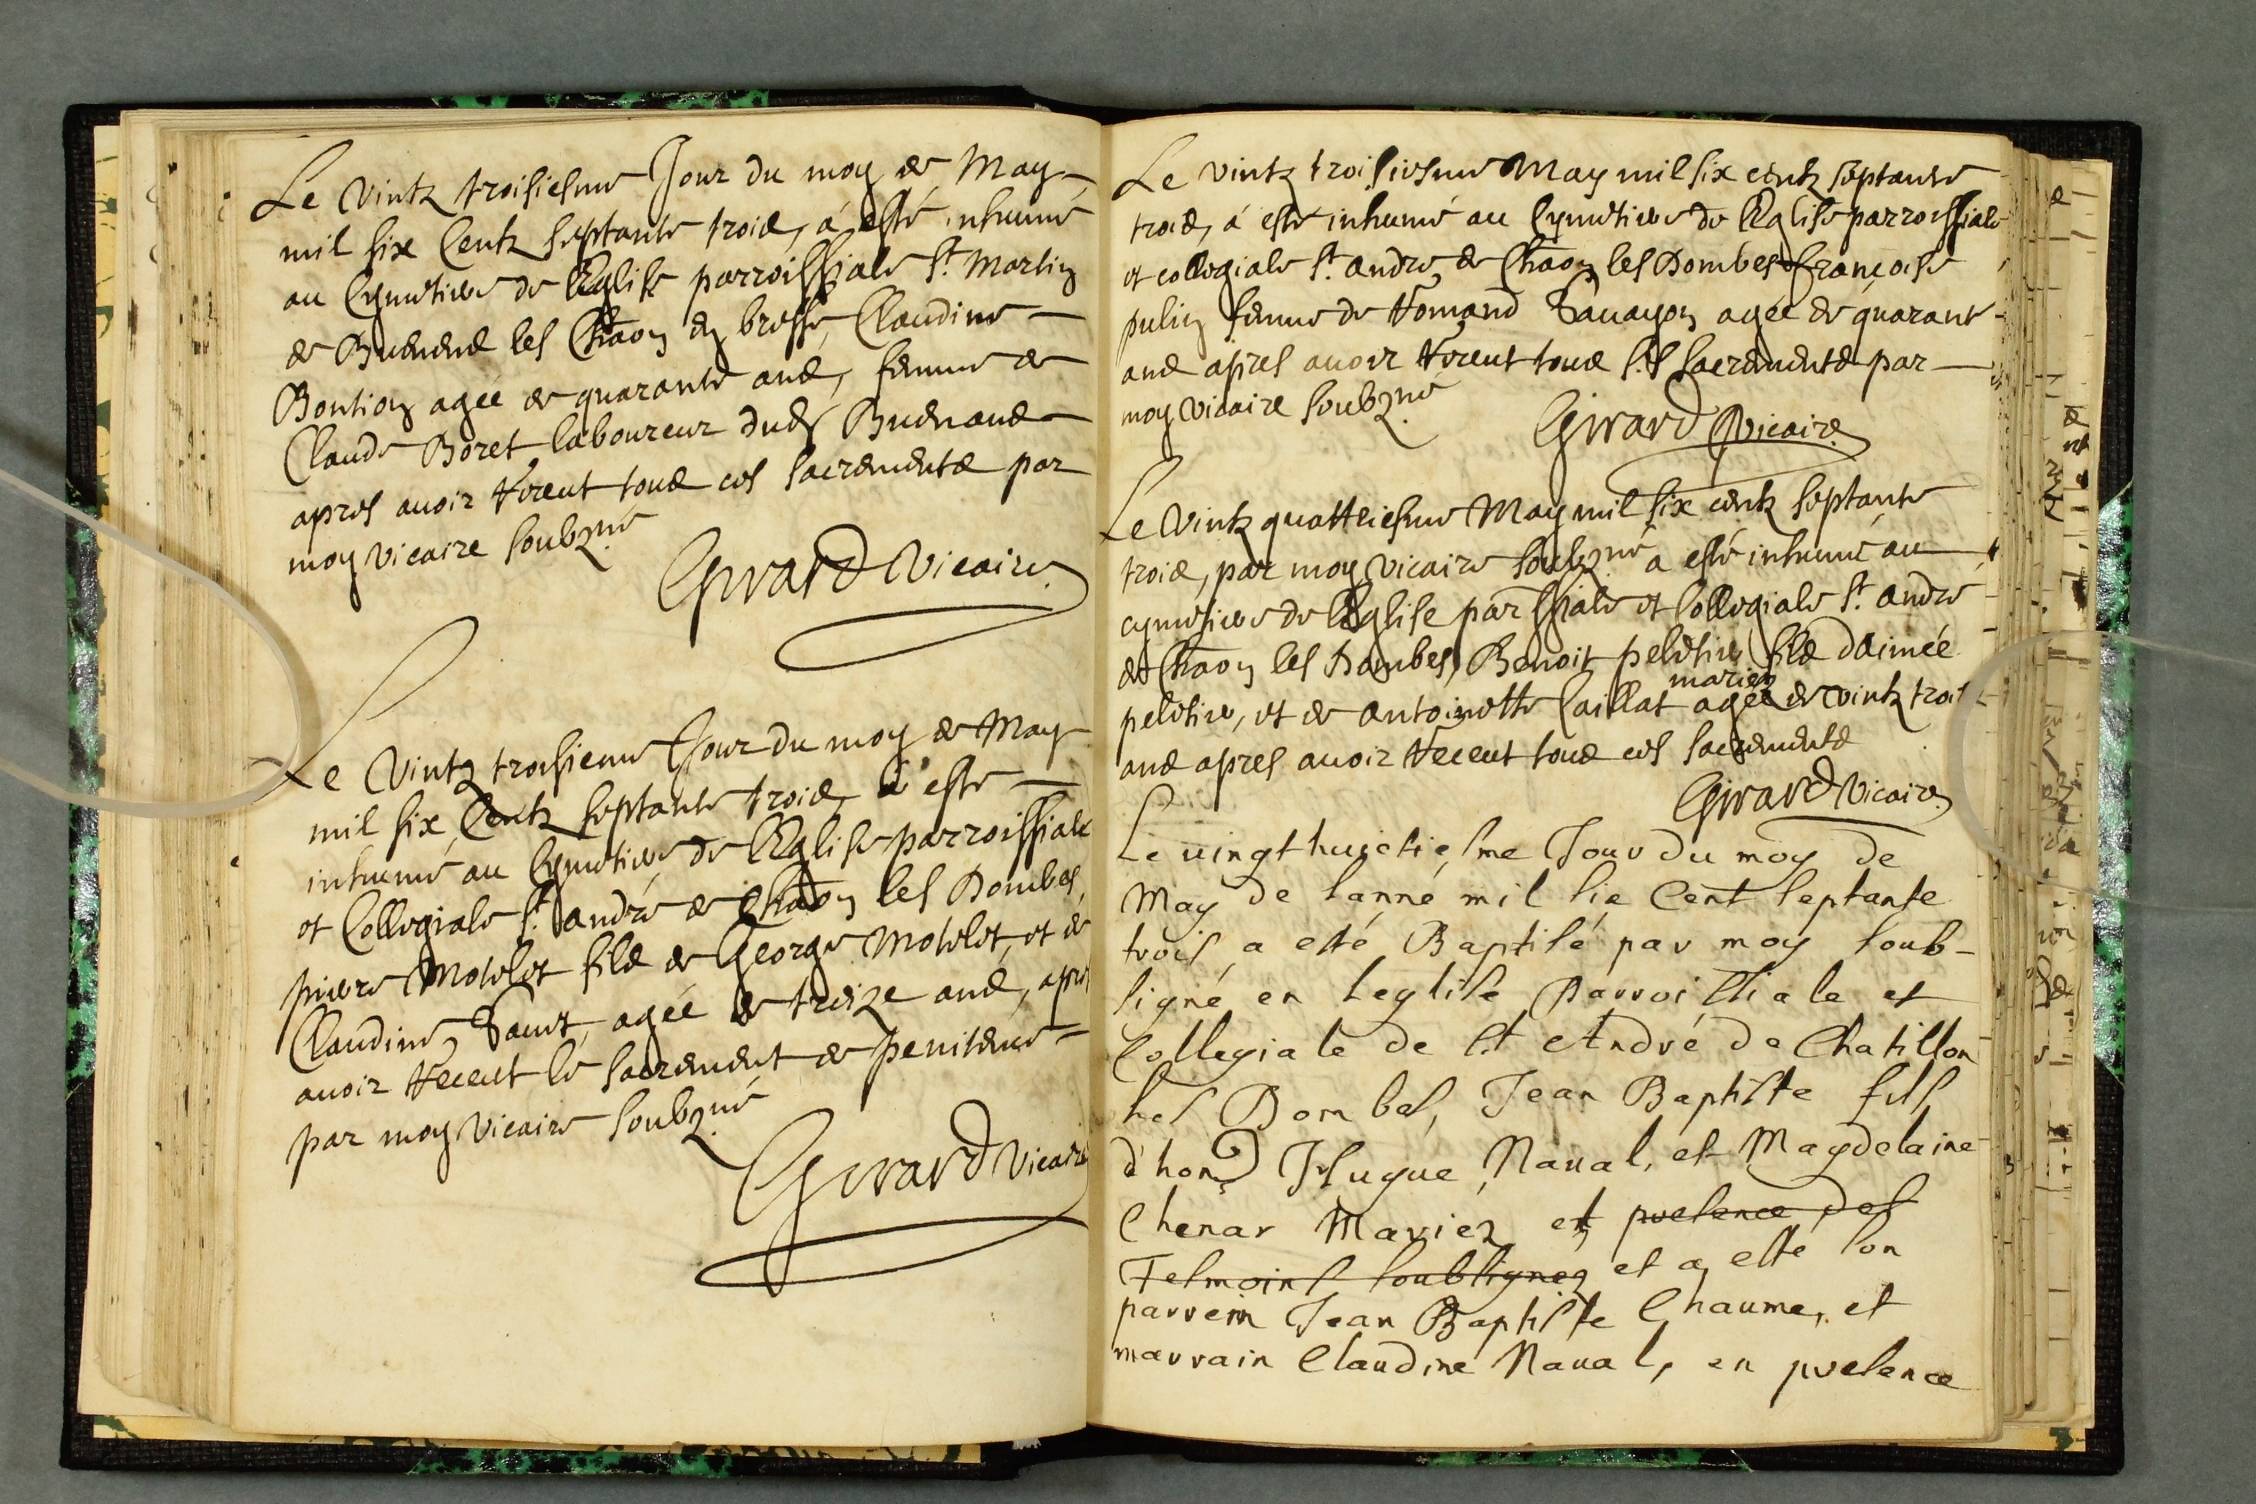 Le Vintz troisiesme Jour du moy de May
mil six Centz septante trois, á esté inhumé
au Cymetiere de lEglise parroissiale St. Martin
de Buenens les Chaon en bresse, Claudine
Bontion agée de quarante ans, femme de
Claude Boret laboureur dud Buenans
apres auoir Receut tous ces sacrements par
moy vicaire soubzné
Girard Vicaire
Le Vintz troisieme Jour du moy de May
mil six Centz septante trois, á esté
inhumé au Cymetiere de lEglise parroissiale
et Collegiale St. André de Chaon les Dombes,
pierre Motelet fils de George Motelet, et de
Claudine agée de treize ans, apres
auoir Receut le sacrement de penitence
par moy vicaire soubzné
Girard Vicaire
Le vintz troisiesme May mil six centz septante
trois, á esté inhumé au Cymetiere de lEglise parroissiale
et collegiale St. andre de Chaon les Dombes françoise
pulin femme de Romand Sauayon agée de quarante
ans apres auoir Receut tous ses sacrements par
moy vicaire soubzné
Girard Vicaire
Le Vintz quattriesme May mil six centz septante
trois, par moy vicaire soubzné a esté inhumé au
cymetiere de lEglise parrssiale et Collegiale St. andre
de Chaon les Dombes, Benoit peletier fils daimée
peletier, et de antoinette Caillat mariez agée de vintz trois
ans apres auoir Receut tous ces sacrements
Girard Vicaire
Le uingt huictiesme Jour du moy de
May de lanné mil six Cent septante
trois, a esté Baptisé par moy soub-
signé en leglise Parroissiale et
Collegiale de st André de Chatillon
les Dombes, Jean Baptiste fils
d'hon Hugue Naual, et Magdelaine
Chenar Mariez et presence des
Tesmoins soubsignez et a esté son
parrein Jean Baptiste Chaume, et
marrain Claudine Naual, en presence